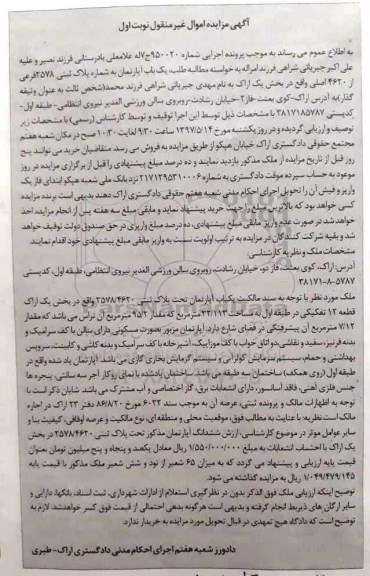 آگهی مزایده اموال غیر منقول نوبت اول
به اطلاع عموم می رساند به موجب پرونده اجرایی شماره ۹۵۰۰۲۰ج۷له غلامعلی یادرستانی فرزند نصیر و علیه
علی اکبر جیریائی شراهی فرزند امراله به خواسته مطالبه طلب، یک باب آپارتمان به شماره پلاک ثبتی ۲۵۷۸فرعی
از ۴۶۲۰ اصلی واقع در بخش یک اراک به نام مهدی جیریائی شراهی فرزند محمد(شخص ثالث به عنوان وثیقه
گذار)به آدرس اراک-کوی بعثت-فاز۲-خیابان رشادت-روبروی سالن ورزشی الغدیر نیروی انتظامی-طبقه اول-
کدپستی ۳۸۱۷۱۸۵۷۸۷ با مشخصات ذیل توسط این اجرا توقیف و توسط کارشناس (رسمی) با مشخصات زیر
توصیف و ارزیابی گردیده و در روز یکشنبه مورخ ۱۳۹۷/۵/۱۴ از ساعت ۹:۳۰ لغایت ۱۰:۳۰ صبح در مکان شعبه هفتم
مجتمع حقوقی دادگستری اراک خیابان هپکو از طریق مزایده به فروش می رسد متقاضیان خرید می توانند پنج
روز قبل از تاریخ مزایده از ملک مذکور بازدید نمایند و ده درصد مبلغ پیشنهادی را قبل از برگزاری مزایده در روز
موعود به حساب سپرده موقت دادگستری به شماره ۲۱۷۱۲۹۵۳۱۰۰۰۶ نزد بانک ملی شعبه هپکو ابتدای فاز یک
واریز و فیش آن را تحویل اجرای احکام مدنی شعبه هفتم حقوقی دادگستری اراک دهند بدیهی است برنده مزایده
کسی خواهد بود که بالاترین مبلغ را جهت خرید پیشنهاد نماید و مابقی مبلغ سه هفته پس از انجام مزایده اخذ
خواهد شد در صورت عدم واریز مابقی مبلغ پیشنهادی، ده درصد مبلغ واریزی در حق صندوق دولت توقیف خواهد
شد و بقیه شرکت کنندگان در مزایده به ترتیب اولویت نسبت به واریز مابقی مبلغ پیشنهادی خود اقدام نمایند.
مشخصات ملک و نظریه کارشناسی:
آدرس: اراک، کوی بعثت، فاز دو، خیابان رشادت، روبروی سالن ورزشی الغدیر نیروی انتظامی، طبقه اول، کدپستی
۳۸۱۷۱-۸-۵۷۸۷
ملک مورد نظر با توجه به سند مالکیت یکباب آپارتمان تحت پلاک ثبتی ۲۵۷۸/۴۶۲۰ واقع در بخش یک اراک
قطعه ۱۲ تفکیکی در طبقه اول به مساحت ۲۳/۱۱۳مترمربع که مقدار ۹/۵۲ مترمربع آن تراس می باشد که مقدار
۷/۱۲ مترمربع آن پیشرفتگی در فضای شارع دارد؛ آپارتمان مزبور بصورت مسکونی دارای سالن با کف سرامیک و
بدنه قرنیز، سفید و نقاشی،دو اتاق خواب با کف موزاییک، آشپزخانه با کف سرامیک و بدنه کاشی و کابینت، سرویس
بهداشتی و حمام، سیستم سرمایش کولرآبی و سیستم گرمایش بخاری گازی می باشد. آپارتمان یاد شده واقع در
طبقه اول (روی همکف) ساختمان سه طبقه می باشد. ساختمان یادشده با نمای روکار آجر سه سانتی، پنجره ها
جنس فلزی آهنی، فاقد آسانسور، دارای انشعابات برق، گاز اختصاصی و آب مشترک می باشد. شایان ذکر است با
توجه به اظهارات مالک و پرونده ثبتی، عرصه آن به موجب سند ۶۰۲۲ مورخ ۸۶/۸/۲۰ دفتر ۲۳ اراک در اجاره
مالک است.نظریه: با عنایت به مطالب فوق، موقعیت محلی و منطقه ای، نوع مالکیت و عرصه اوقافی، کیفیت بنا و
سایر عوامل موثر در موضوع کارشناسی، ارزش ششدانگ آپارتمان مذکور تحت پلاک ثبتی ۲۵۷۸/۴۶۲۰ در بخش
یک اراک با احتساب انشعابات به مبلغ ۱/۵۵۰/۰۰۰/۰۰۰ ریال معادل یکصد و پنجاه و پنج میلیون تومان بعنوان
قیمت پایه ارزیابی و پیشنهاد می گردد که به میزان ۶۵ شعیر از نود و شش شعیر ملک مذکور با قیمت پایه
۱/۰۴۹/۴۷۹/۱۴۵ ریال به مزایده گذاشته می شود.
توضیح اینکه ارزیابی ملک فوق الذکر بدون در نظر گیری استعلام از ادارات شهرداری، ثبت اسناد، بانکها، دارایی و
سایر ارگان های ذیربط انجام گرفته و بدیهی است هرگونه بدهی احتمالی از قیمت فوق کسر خواهدشد. لازم به
توضیح است که دادگاه هیچ تعهدی در قبال تحویل مورد مزایده به خریدار ندارد.
دادورز شعبه هفتم اجرای احکام مدنی دادگستری اراک- طبری